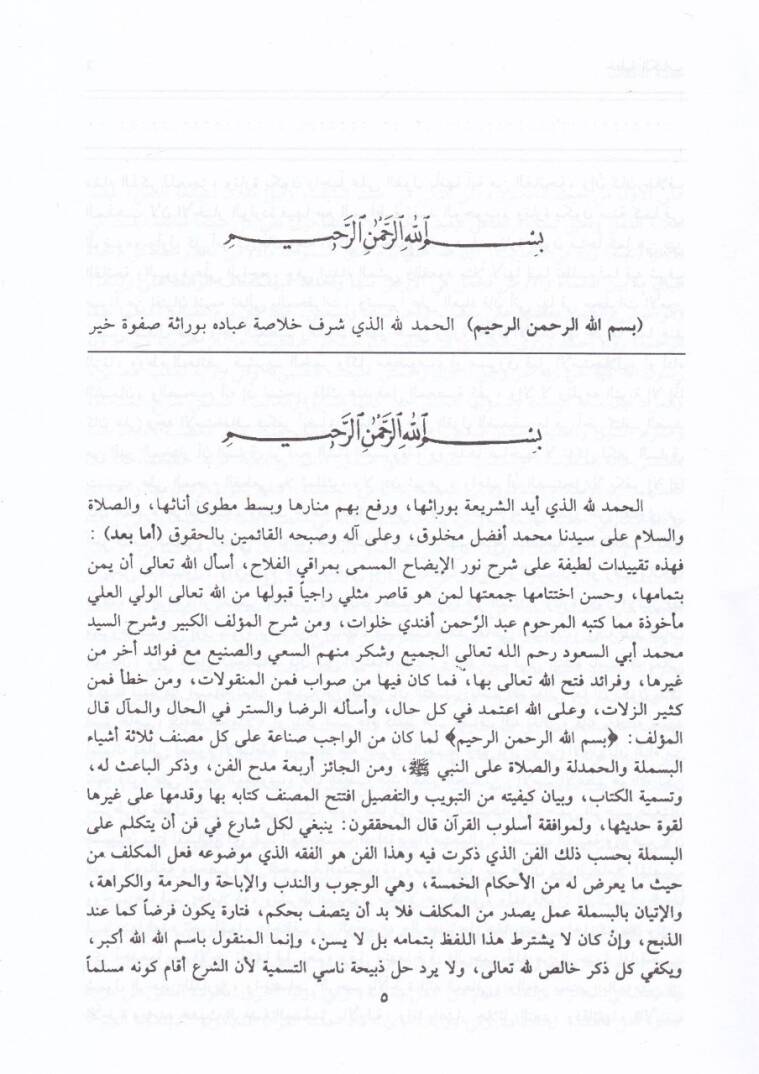 بسم الله الرحمن الرحيم
(بسم الله الرحمن الرحيم) الحمد لله الذي شرف خلاصة عباده بوراثة صفوة خير
بسم الله الرحمن الرحيم
الحمد لله الذي أيد الشريعة بوراثها، ورفع بهم منارها وبسط مطوى أثاثها، والصلاة
والسلام على سيدنا محمد أفضل مخلوق، وعلى آله وصحبه القائمين بالحقوق (أما بعد) :
فهذه تقييدات لطيفة على شرح نور الإيضاح المسمى بمراقي الفلاح، أسأل الله تعالى أن يمن
بتمامها، وحسن اختتامها جمعتها لمن هو قاصر مثلي راجياً قبولها من الله تعالى الولي العلي
مأخوذة مما كتبه المرحوم عبد الرَّحمن أفندي خلوات، ومن شرح المؤلف الكبير وشرح السيد
محمد أبي السعود رحم الله تعالى الجميع وشكر منهم السعي والصنيع مع فوائد أخر من
غيرها، وفرائد فتح الله تعالى بها، فما كان فيها من صواب فمن المنقولات، ومن خطأ فمن
كثير الزلات، وعلى الله اعتمد في كل حال، وأسأله الرضا والستر في الحال والمآل قال
المؤلف: ﴿بسم الله الرحمن الرحيم﴾ لما كان من الواجب صناعة على كل مصنف ثلاثة أشياء
البسملة والحمدلة والصلاة على النبي ﷺ، ومن الجائز أربعة مدح الفن، وذكر الباعث له،
وتسمية الكتاب، وبيان كيفيته من التبويب والتفصيل افتتح المصنف كتابه بها وقدمها على غيرها
لقوة حديثها، ولموافقة أسلوب القرآن قال المحققون: ينبغي لكل شارع في فن أن يتكلم على
البسملة بحسب ذلك الفن الذي ذكرت فيه وهذا الفن هو الفقه الذي موضوعه فعل المكلف من
حيث ما يعرض له من الأحكام الخمسة، وهي الوجوب والندب والإباحة والحرمة والكراهة،
والإتيان بالبسملة عمل يصدر من المكلف فلا بد أن يتصف بحكم، فتارة يكون فرضاً كما عند
الذبح، وإنْ كان لا يشترط هذا اللفظ بتمامه بل لا يسن، وإنما المنقول باسم الله الله أكبر،
ويكفي كل ذكر خالص لله تعالى، ولا يرد حل ذبيحة ناسي التسمية لأن الشرع أقام كونه مسلماً
٥